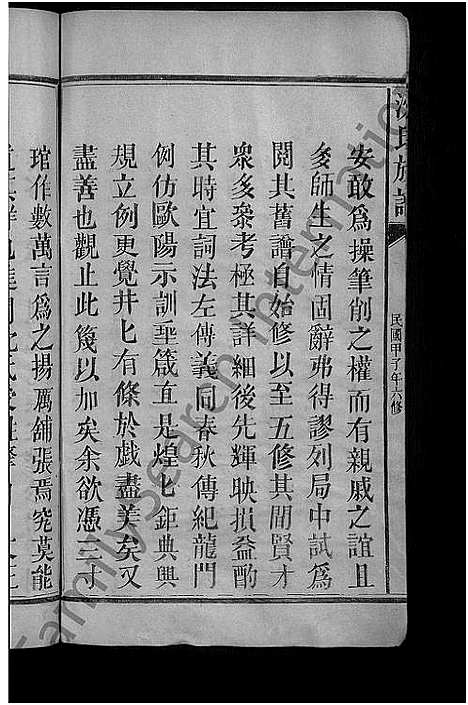 氏族譜
民國甲子年六修
安敢為操筆削之權而有親戚之誼且
忝師生之情固辭弗得謬列局中試為
閱其舊譜自始修以至五修其間賢才
眾多叅考極其詳細後先輝映損益酌
其時宜詞法左傳義同春秋傳紀龍門
例仿歐陽示訓垂箴直是煌匕鉅典興
規立例更覺井匕有條於戲盡美矣又
盡善也觀止此篾以加矣余欲憑三寸
琯作數萬言為之揚厲舖張焉究莫能
FamilySearch International